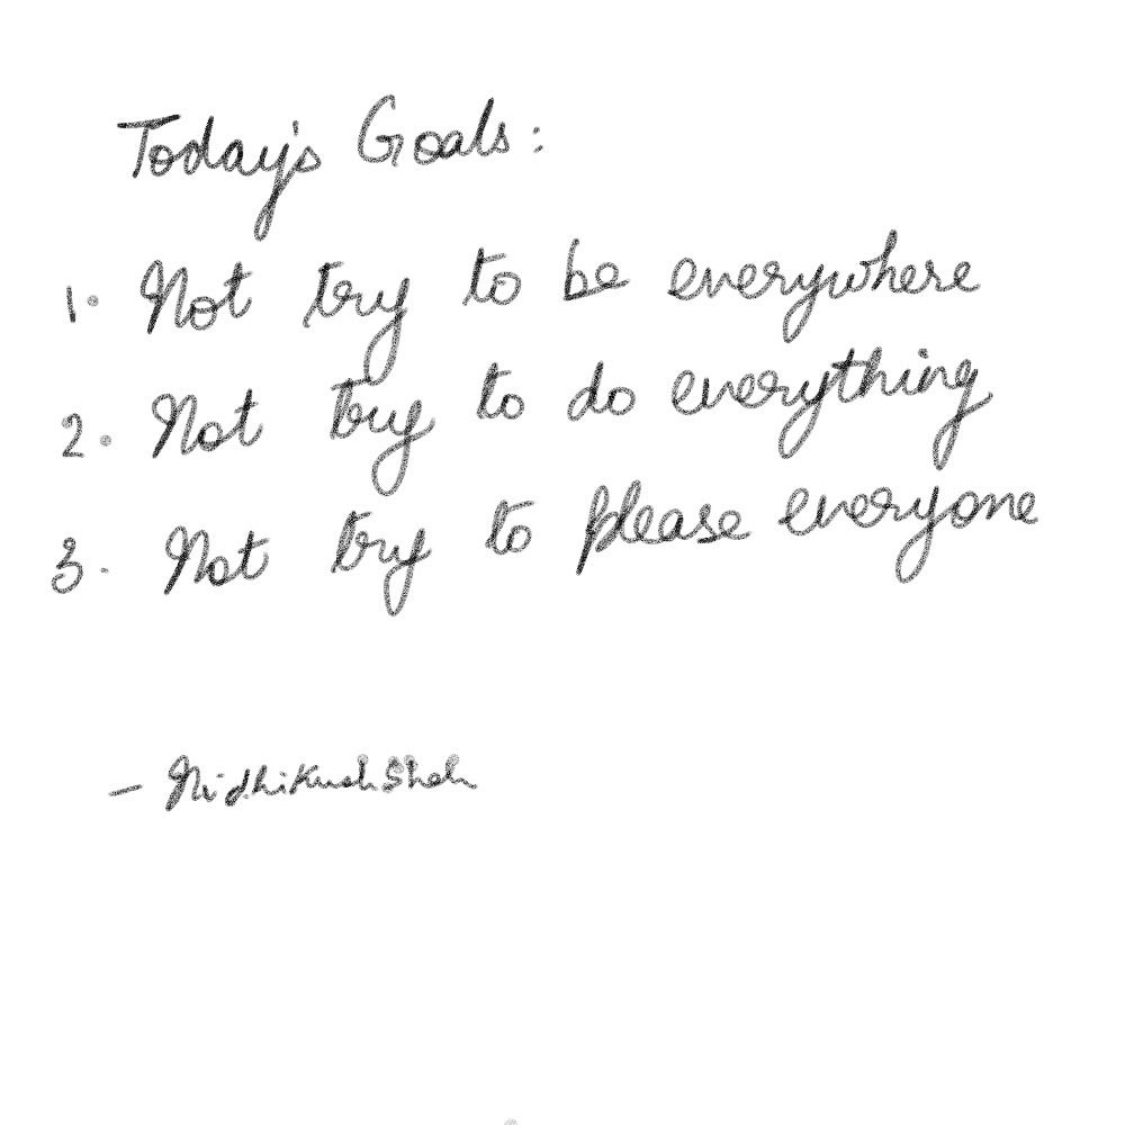 Today's Goals:
1. Not try to be everywhere
2. Not try to do everything
3. Not try to please everyone
- NidhiKushShah